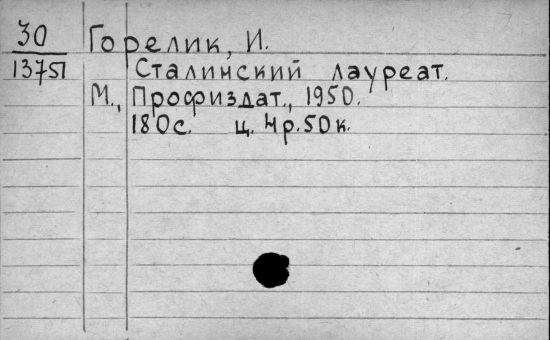 30 Горелик, И.
13751 Сталинский лауреат.
М., Профиздат., 1950.
180с. ц. 4р.50к.